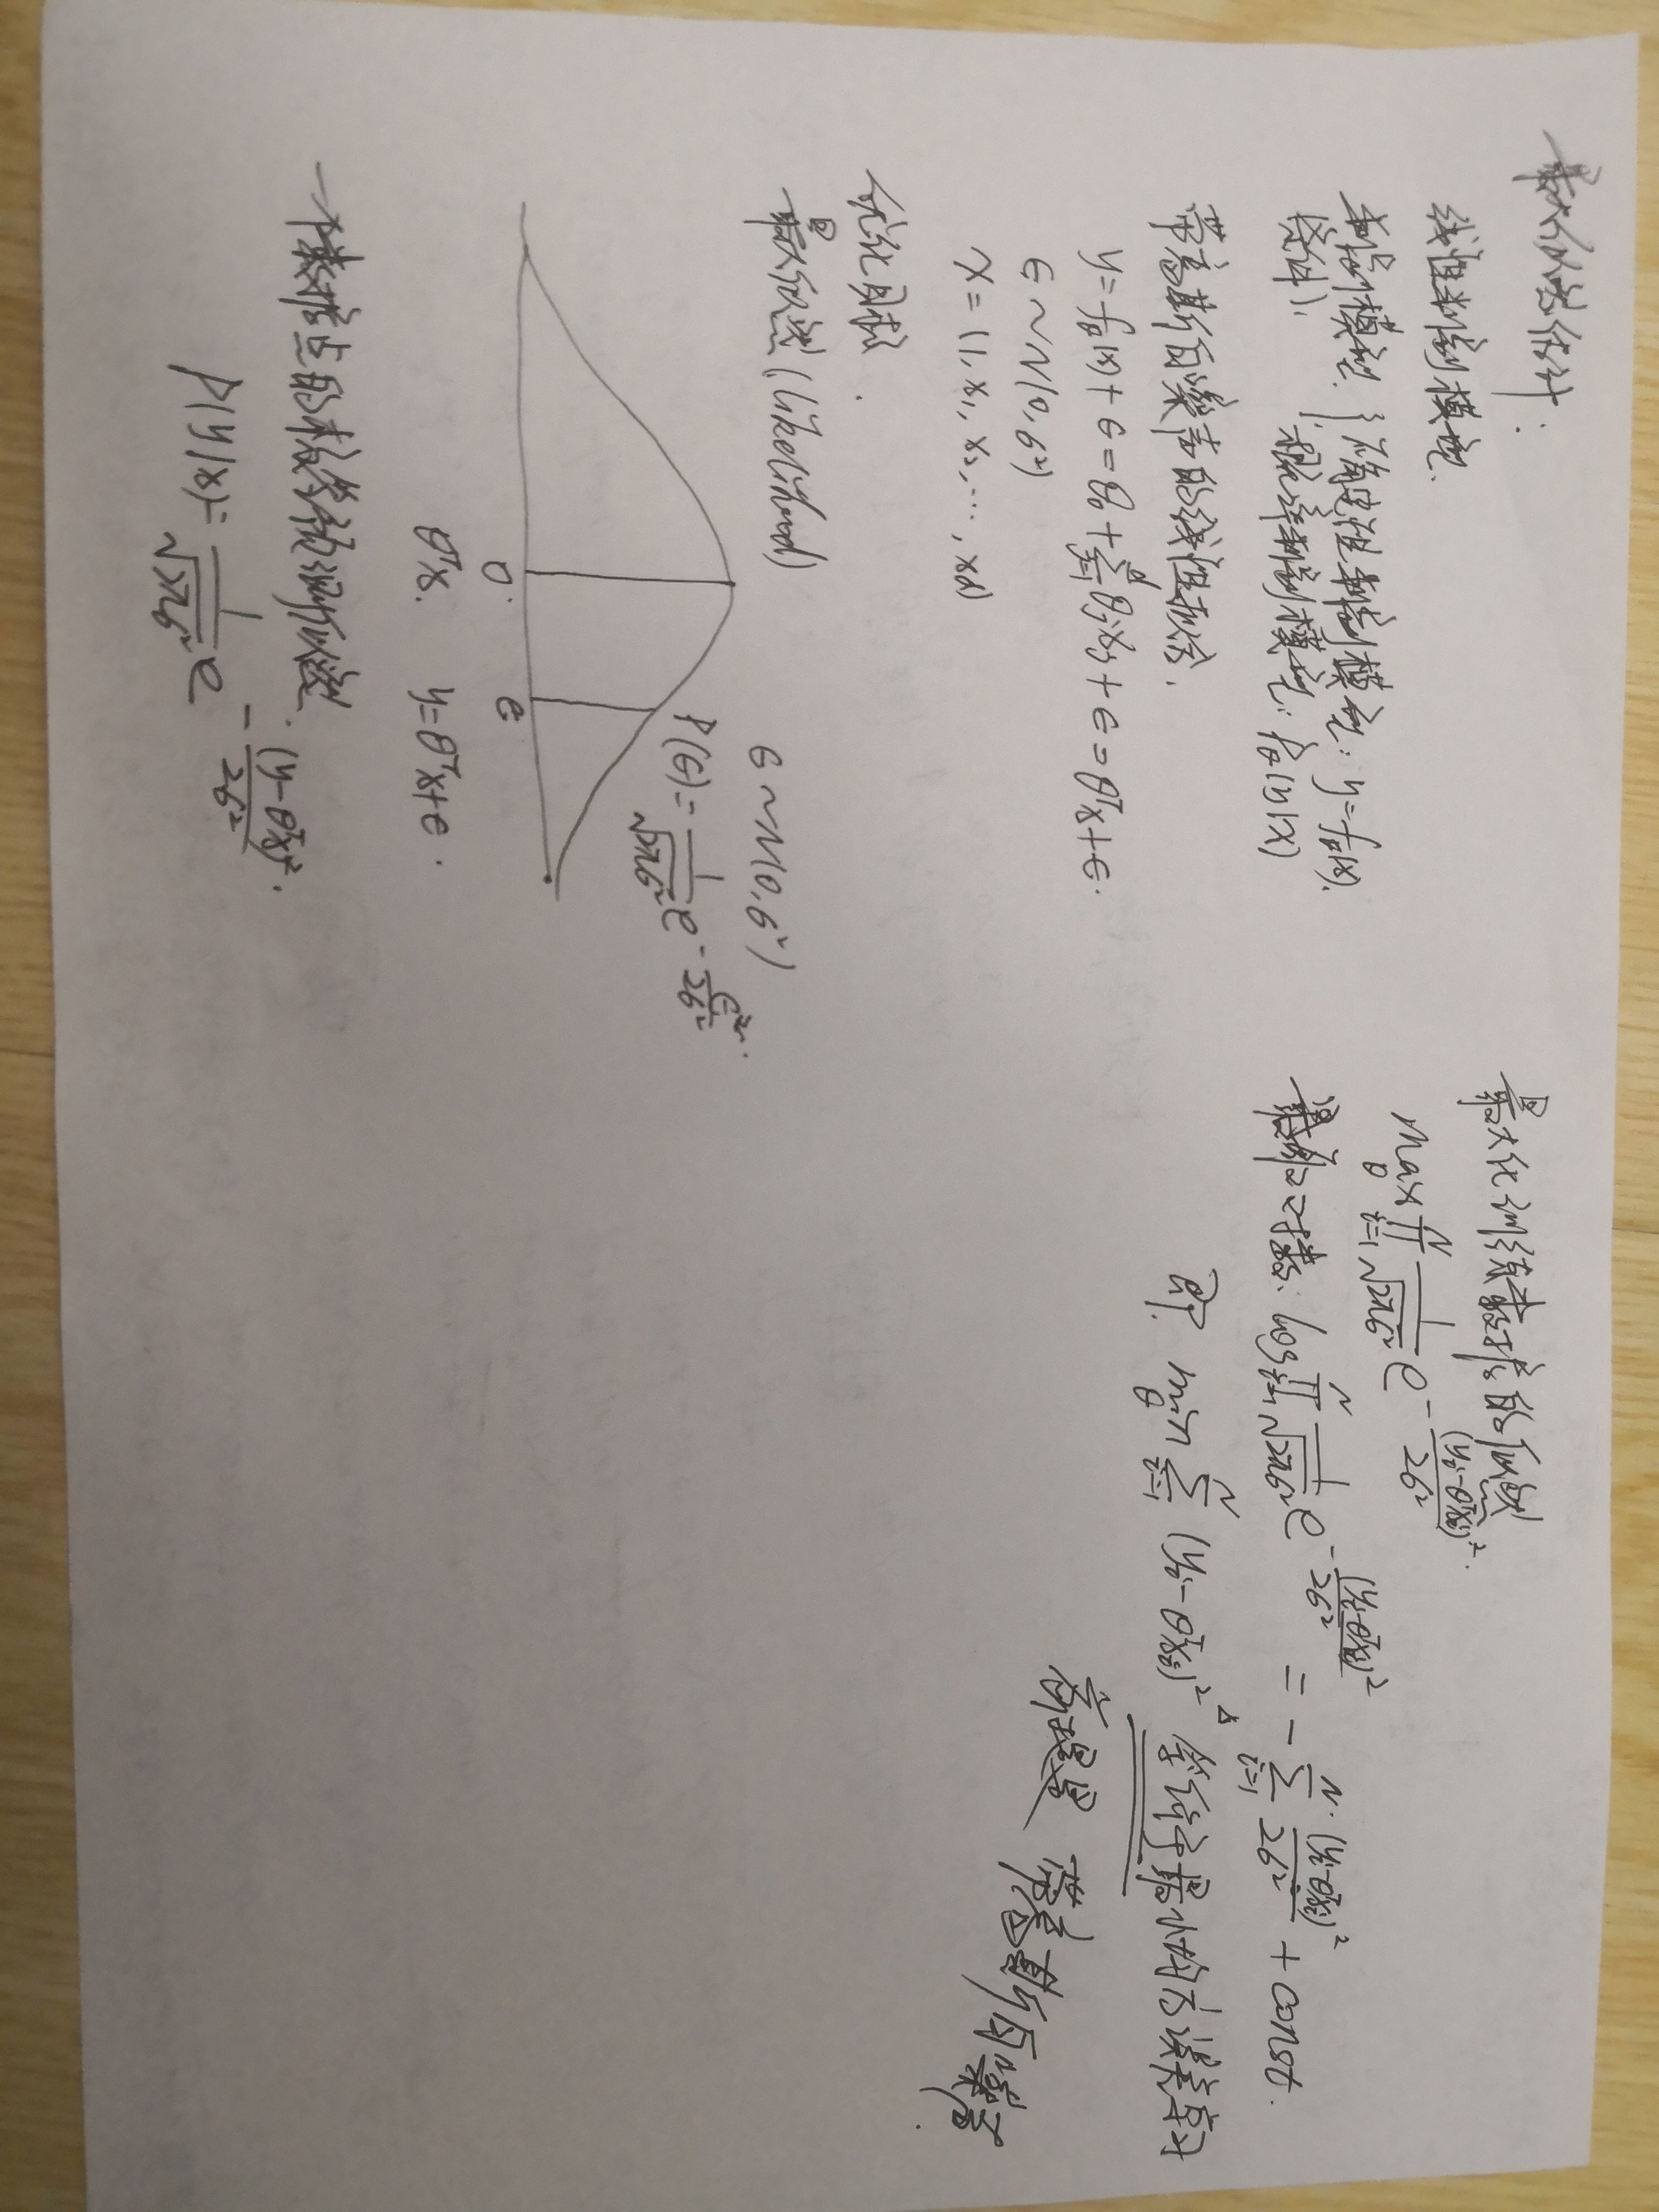 最大似然估计:
线性判别模型.
判别模型 { 确定性判别模型: y=fθ(x).
(条件) 概率判别模型: Pθ(y|x)
带高斯白噪声的线性拟合.
y=fθ(x)+ϵ=θ₀+∑_{j=1}^{d}θⱼxⱼ+ϵ=θᵀx+ϵ.
ϵ~N(0,σ²)
x=(1,x₁,x₂,…,xd)
优化目标.
最大似然(likelihood)
ϵ~N(0,σ²)
P(ϵ)=\frac{1}{\sqrt{2πσ²}}e^{-\frac{ϵ²}{2σ²}}.
0 ϵ
θᵀx. y=θᵀx+ϵ.
一个数据点的
P(y|x)=\frac{1}{\sqrt{2πσ²}}e^{-\frac{(y-θᵀx)²}{2σ²}}.
最大化训练数据的似然
max_θ ∏_{i=1}^{N}\frac{1}{\sqrt{2πσ²}}e^{-\frac{(yᵢ-θᵀxᵢ)²}{2σ²}}.
对数: log∏_{i=1}^{N}\frac{1}{\sqrt{2πσ²}}e^{-\frac{(yᵢ-θᵀxᵢ)²}{2σ²}} = -∑_{i=1}^{N}\frac{(yᵢ-θᵀxᵢ)²}{2σ²}+const.
即. min_θ ∑_{i=1}^{N}(yᵢ-θᵀxᵢ)² 等价于最小均方误差学习
前提是 带高斯白噪声.